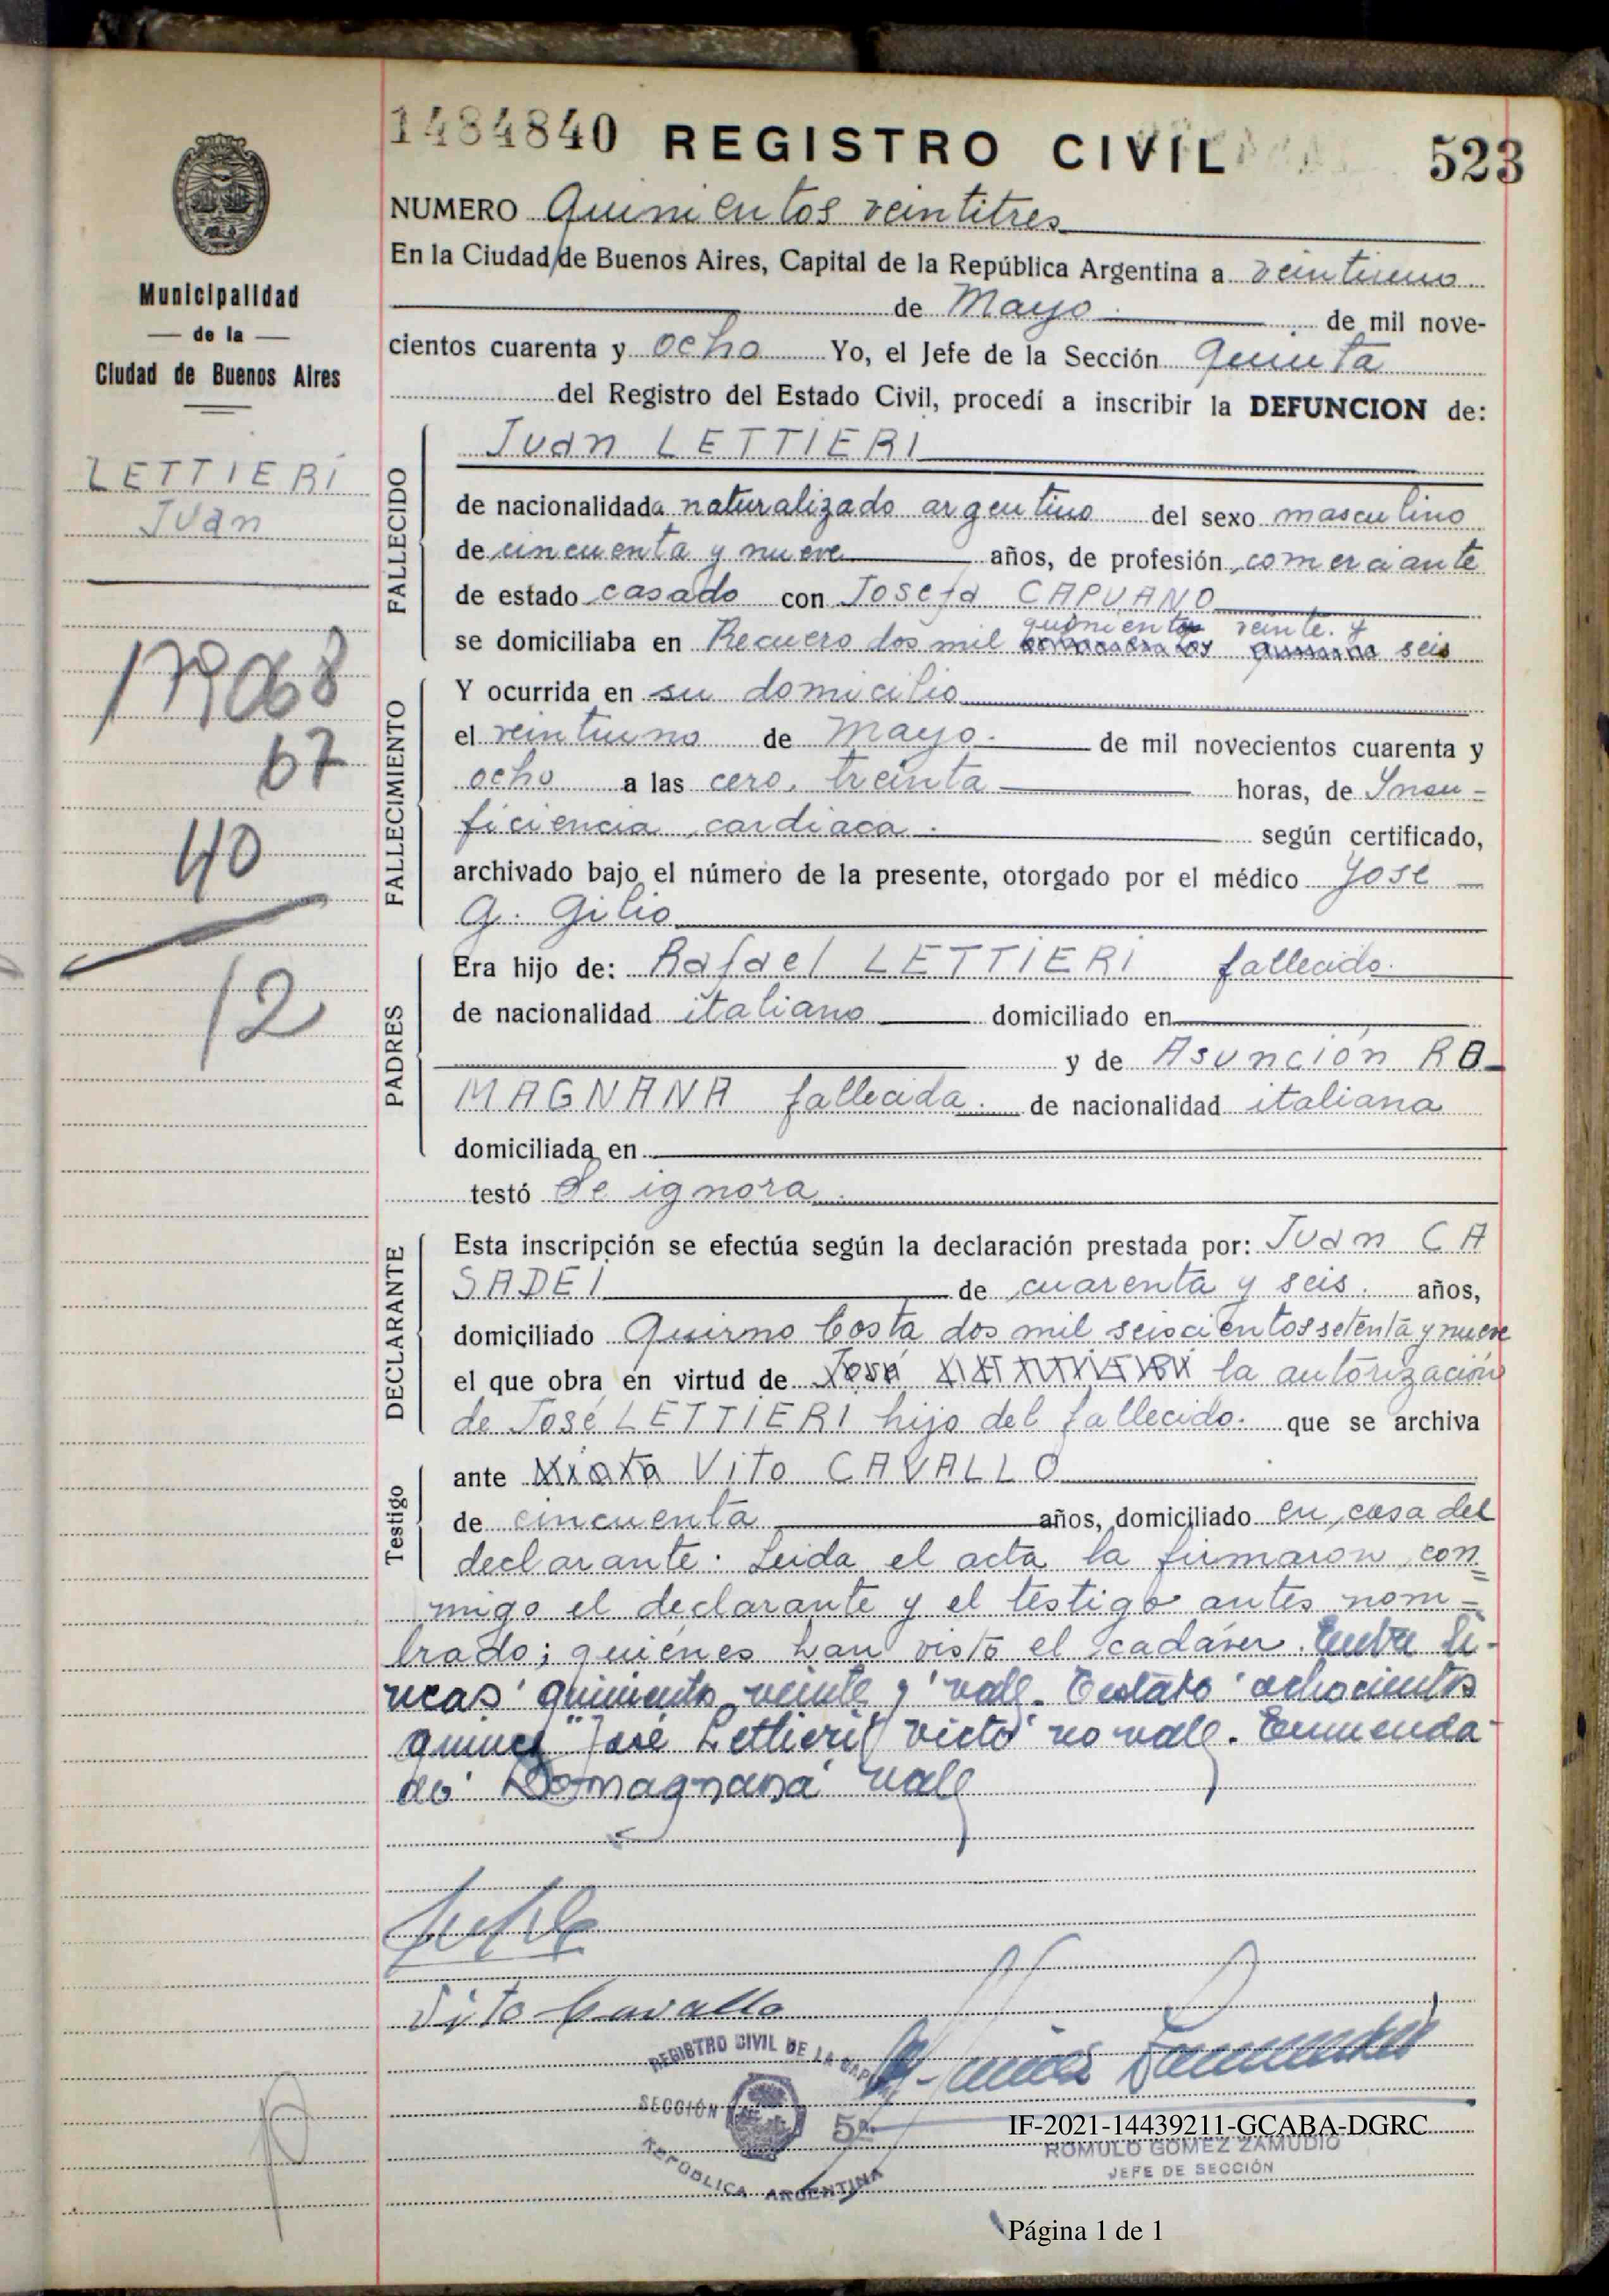 1484840 REGISTRO CIVIL 523
NUMERO Quinientos veintitres
En la Ciudad de Buenos Aires, Capital de la República Argentina a veintiuno
de Mayo de mil nove-
cientos cuarenta y ocho Yo, el Jefe de la Sección Quinta
del Registro del Estado Civil, procedí a inscribir la DEFUNCION de:
Municipalidad
de la
Ciudad de Buenos Aires
LETTIERI
Juan
17968
67
40
12
FALLECIDO
Juan LETTIERI
de nacionalidada naturalizado argentino del sexo masculino
de cincuenta y nueve años, de profesión comerciante
de estado casado con Josefa CAPUANO
quinientos veinte y
se domiciliaba en Recuero dos mil seis
FALLECIMIENTO
Y ocurrida en su domicilio
el veintiuno de Mayo de mil novecientos cuarenta y
ocho a las cero, treinta horas, de Insu-
ficiencia cardiaca. según certificado,
archivado bajo el número de la presente, otorgado por el médico José
A. Gilio
PADRES
Era hijo de: Rafael LETTIERI fallecido.
de nacionalidad italiano domiciliado en
y de Asunción RO
MAGNANA fallecida. de nacionalidad italiana
domiciliada en
testó Se ignora
DECLARANTE
Esta inscripción se efectúa según la declaración prestada por: Juan CA
SADEI de cuarenta y seis años,
domiciliado Quirno Costa dos mil seiscientos setenta y nueve
el que obra en virtud de la autorización
de José LETTIERI hijo del fallecido. que se archiva
Testigo
ante Vito CAVALLO
de cincuenta años, domiciliado en casa del
declarante. Leida el acta la firmaron con
migo el declarante y el testigo antes nom-
brado; quienes han visto el cadáver. Entre li-
neas "quinientos veinte y" vale. Testado "ochocientos
quince" "José Lettieri" "Victo" no vale. Enmenda-
do "Romagnana" vale
Vito Cavallo
REGISTRO CIVIL DE LA CAP
SECCIÓN 5a
REPÚBLICA ARGENTINA
IF-2021-14439211-GCABA-DGRC
ROMULO GOMEZ ZAMUDIO
JEFE DE SECCIÓN
Página 1 de 1